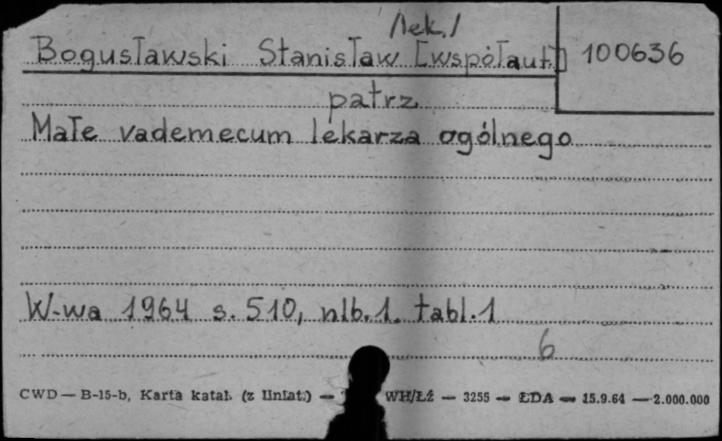 /lek./
Bogusławski Stanisław [współaut.] 100636
patrz
Małe vademecum lekarza ogólnego
W-wa 1964 s. 510, nlb. 1. tabl. 1
6
CWD — B-15-b, Karta katal. (z liniat.) — WH/Łź — 3255 — ŁDA — 15.9.64 — 2.000.000